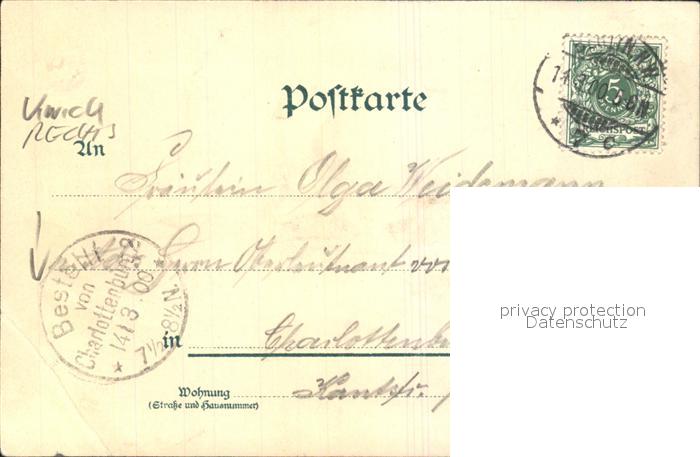 Postkarte
BERLIN N.W.
14.3.00. 7-8N.
* 7 c
5
REICHSPOST
Knick
RECHTS
An
Fräulein Olga Weidemann
Herrn Oberleutnant von
Bestellt
von
Charlottenburg 2
14/3.00
7½-8½N.
*
in Charlottenb
Wohnung
(Straße und Hausnummer)
Kantstr.
privacy protection
Datenschutz